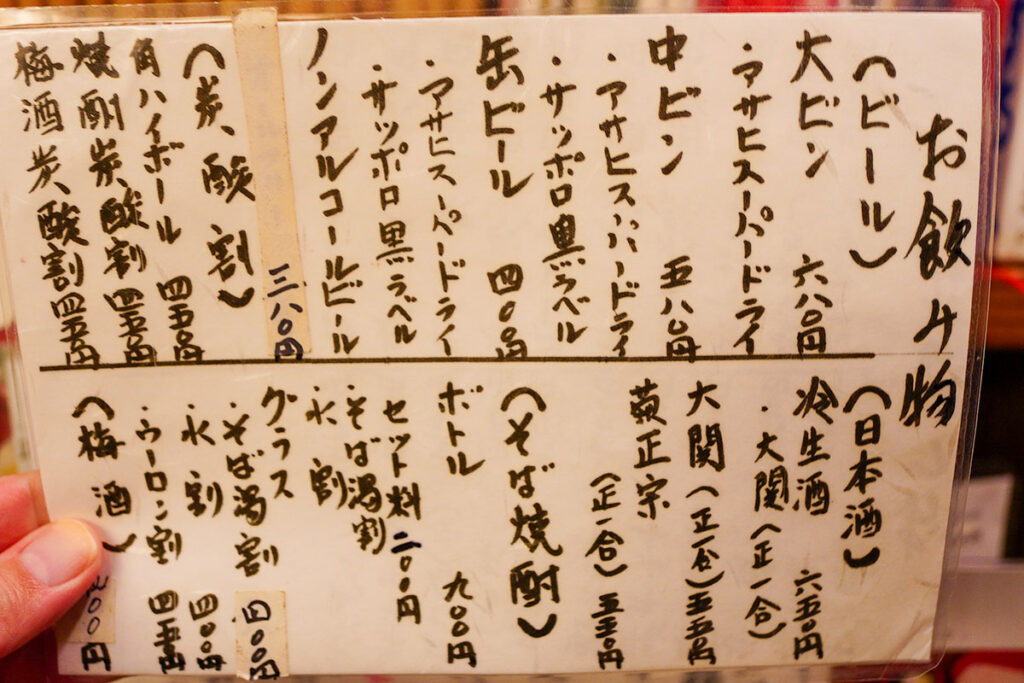 お飲み物
(ビール)
大ビン 六八〇円
・アサヒスーパードライ
中ビン 五八〇円
・アサヒスーパードライ
・サッポロ黒ラベル
缶ビール 四〇〇円
・アサヒスーパードライ
・サッポロ黒ラベル
ノンアルコールビール
三八〇円
(炭酸割)
角ハイボール 四五〇円
焼酎炭酸割 四五〇円
梅酒炭酸割 四五〇円
(日本酒)
冷生酒 六五〇円
・大関(正一合)
大関(正一合)五五〇円
菊正宗
(正一合)五五〇円
(そば焼酎)
ボトル 九〇〇円
セット料 二〇〇円
・そば湯割
・水割
グラス
・そば湯割 四〇〇円
・水割 四〇〇円
・ウーロン割 四五〇円
(梅酒) 四〇〇円